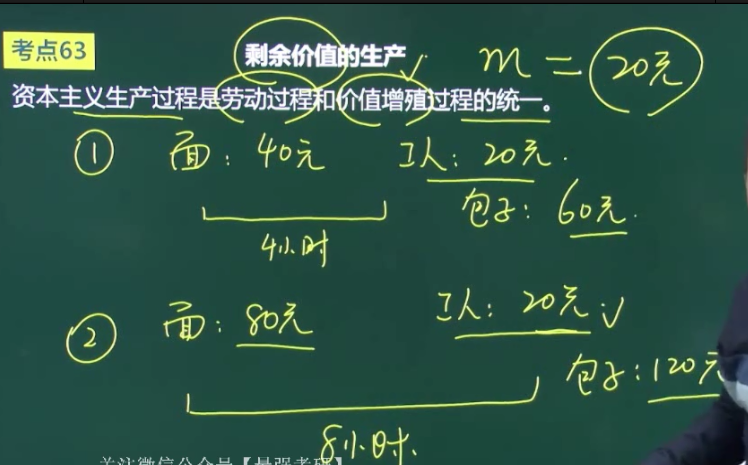 考点63
剩余价值的生产 √ m = 20元
资本主义生产过程是劳动过程和价值增殖过程的统一。
① 面：40元 工人：20元.
包子：60元.
4小时
② 面：80元 工人：20元 √
包子：120元
8小时.
关注微信公众号【最强考研】